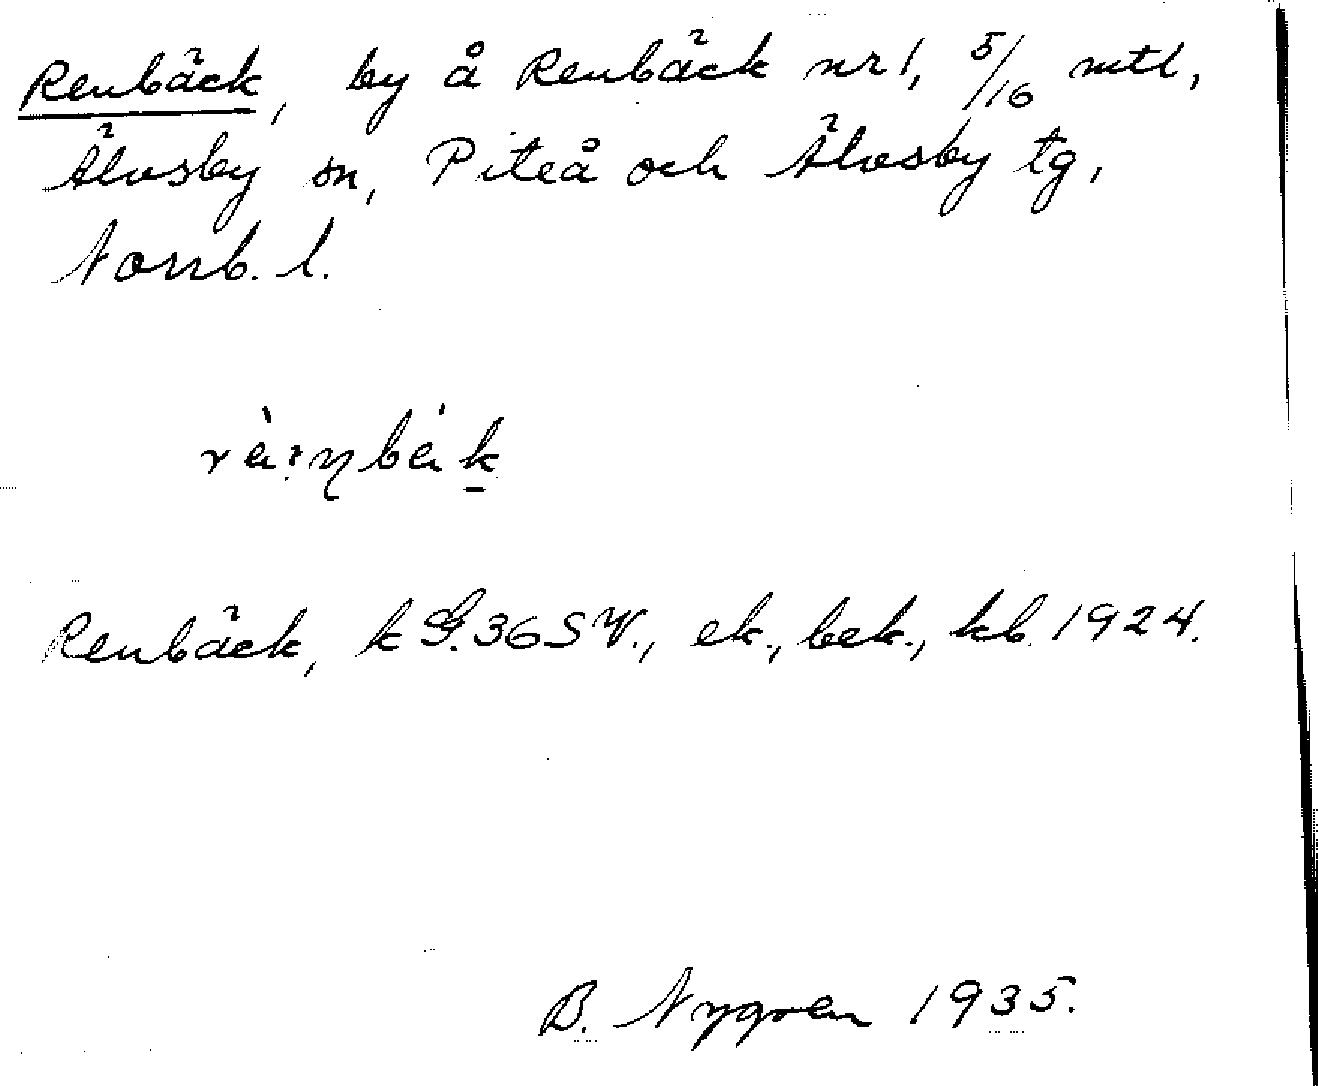 Renbäck, by å Renbäck nr 1, 5/16 mtl,
Älvsby sn, Piteå och Älvsby tg,
Norrb. l.
Renbäck, k G.36SV., ek., bek., kb. 1924.
B. Nygren 1935.